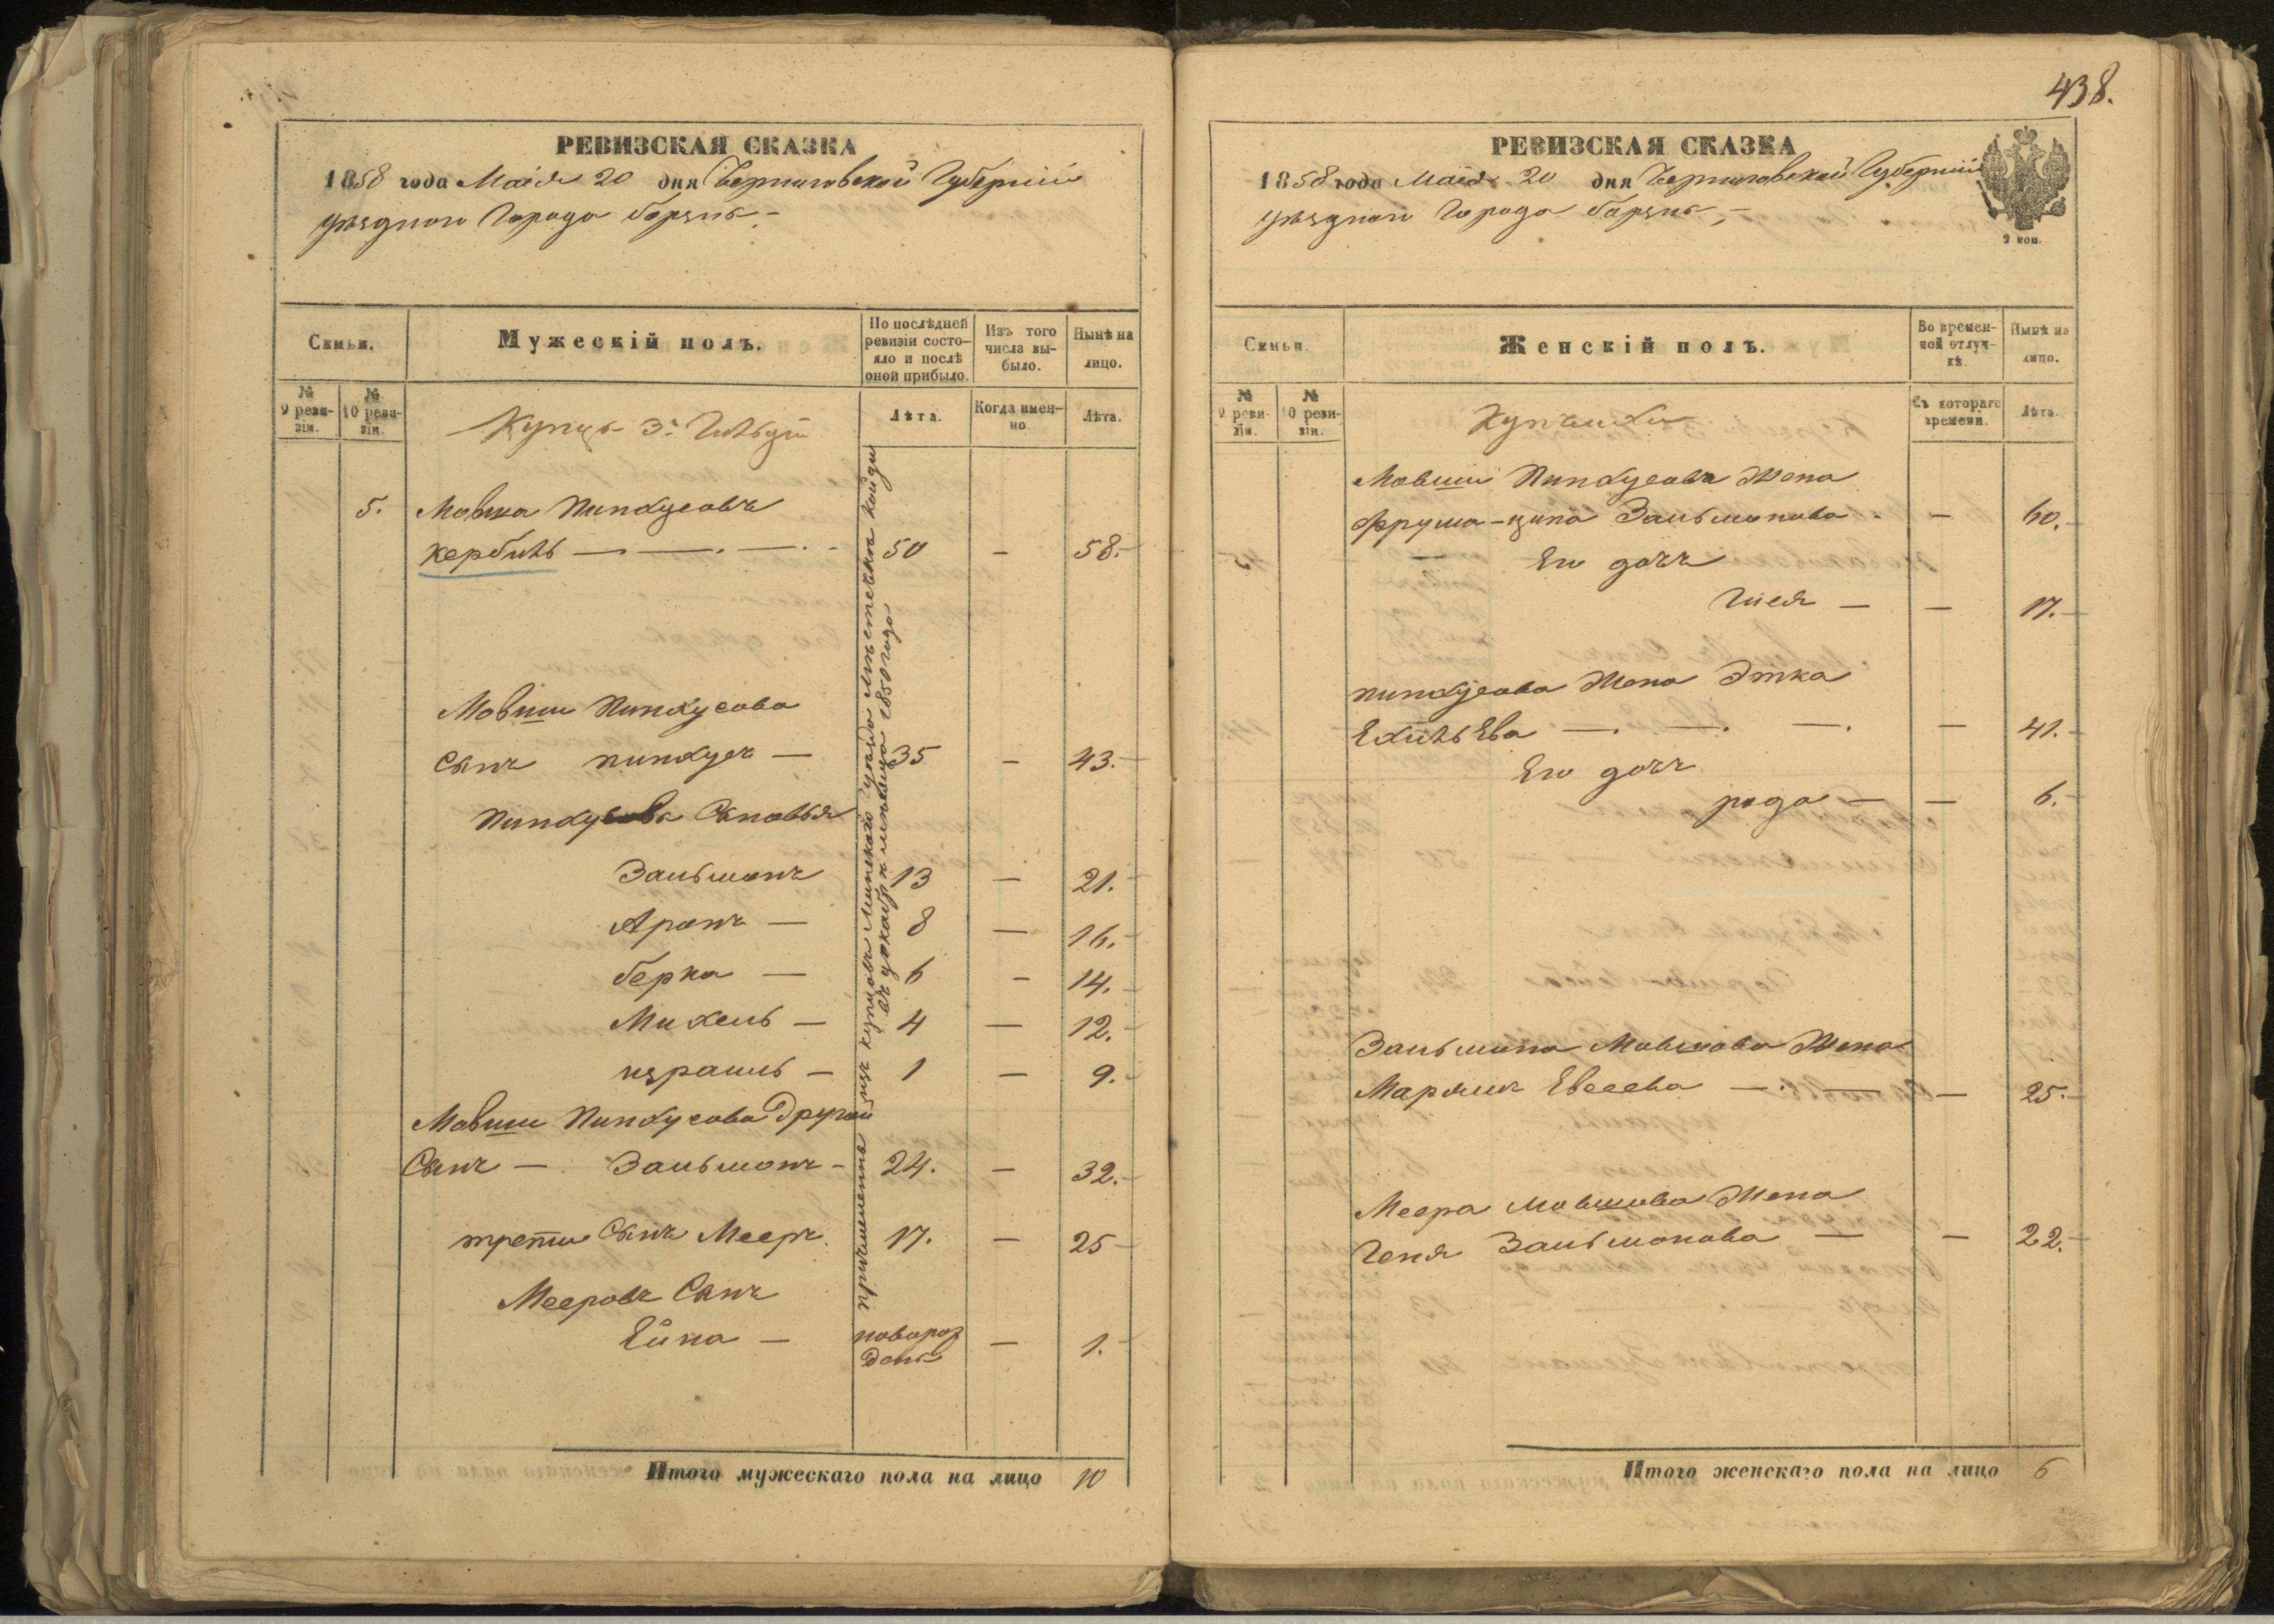 РЕВИЗСКАЯ СКАЗКА
1858 года Маія 20 дня Черниговской Губерніи
уѣзднаго Города борзнъ
Семьи.
Мужескій полъ.
По послѣдней ревизіи состояло и послѣ оной прибыло.
Изъ того числа выбыло.
Нынѣ на лицо.
№ 9 ревизіи.
№ 10 ревизіи.
Купцъ 3й Гильдіи
Лѣта.
Когда именно.
Лѣта.
5. Мовша Пинхусовъ
Кербиль — 50 — 58.
Мовши Пинхусова
Сынъ пинхусъ — 35 — 43.
Пинхусова Сыновья
Зальманъ 13 — 21.
Аронъ — 8 — 16.
берка — 6 — 14.
Михель — 4 — 12.
израиль — 1 — 9.
Мовши Пинхусова Другой
Сынъ — Зальманъ — 24. — 32.
третій Сынъ Мееръ 17. — 25
Мееровъ Сынъ
Ейна — новорож
денъ — 1.
причисленны изъ купцовъ Минскаго уѣзда
въ 1850 года
Итого мужескаго пола на лицо 10
438.
РЕВИЗСКАЯ СКАЗКА
1858 года Маія 20 дня Черниговской Губерніи
уѣзднаго Города борзнъ
2 коп.
Семьи.
Женскій полъ.
Во временной отлучкѣ.
Нынѣ на лицо.
№ 9 ревизіи.
№ 10 ревизіи.
Купчихи
Съ котораго времени.
Лѣта.
Мовши Пинхусова Жена
Фрума-ципа Зальманова — 60.
Его дочь
Гися — — 17.
пинхусова Жена Этка
Ехильева — 41.
Его дочь
рода — — 6.
Зальмана Мовшова Жена
Марьяся Евсеева — — 25.
Меера Мовшова Жена
Геня Зальманова — — 22.
Итого женскаго пола на лицо 6